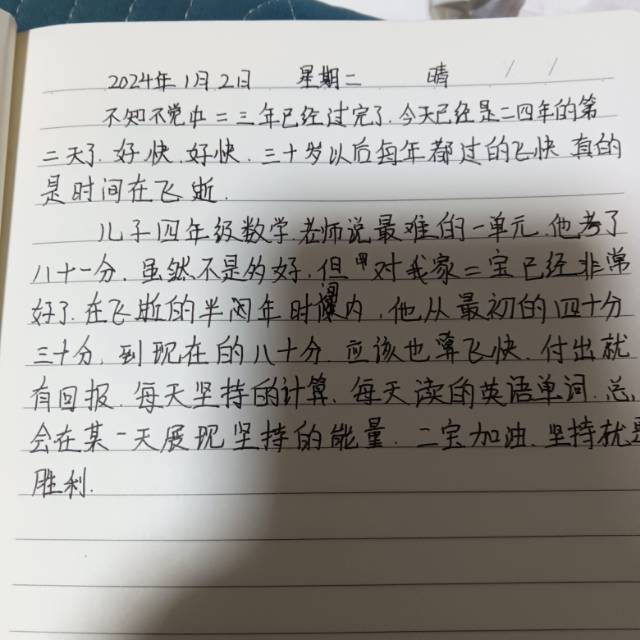 2024年1月2日 星期二 晴
不知不觉中二三年已经过完了.今天已经是二四年的第
二天了.好快.好快.三十岁以后每年都过的飞快.真的
是时间在飞逝.
儿子四年级数学.老师说最难的一单元.他考了
八十一分.虽然不是多好.但 对我家二宝已经非常
好了.在飞逝的半年时间内.他从最初的四十分
三十分.到现在的八十分.应该也算飞快.付出就
有回报.每天坚持的计算.每天读的英语单词.总
会在某一天展现坚持的能量.二宝加油.坚持就是
胜利.